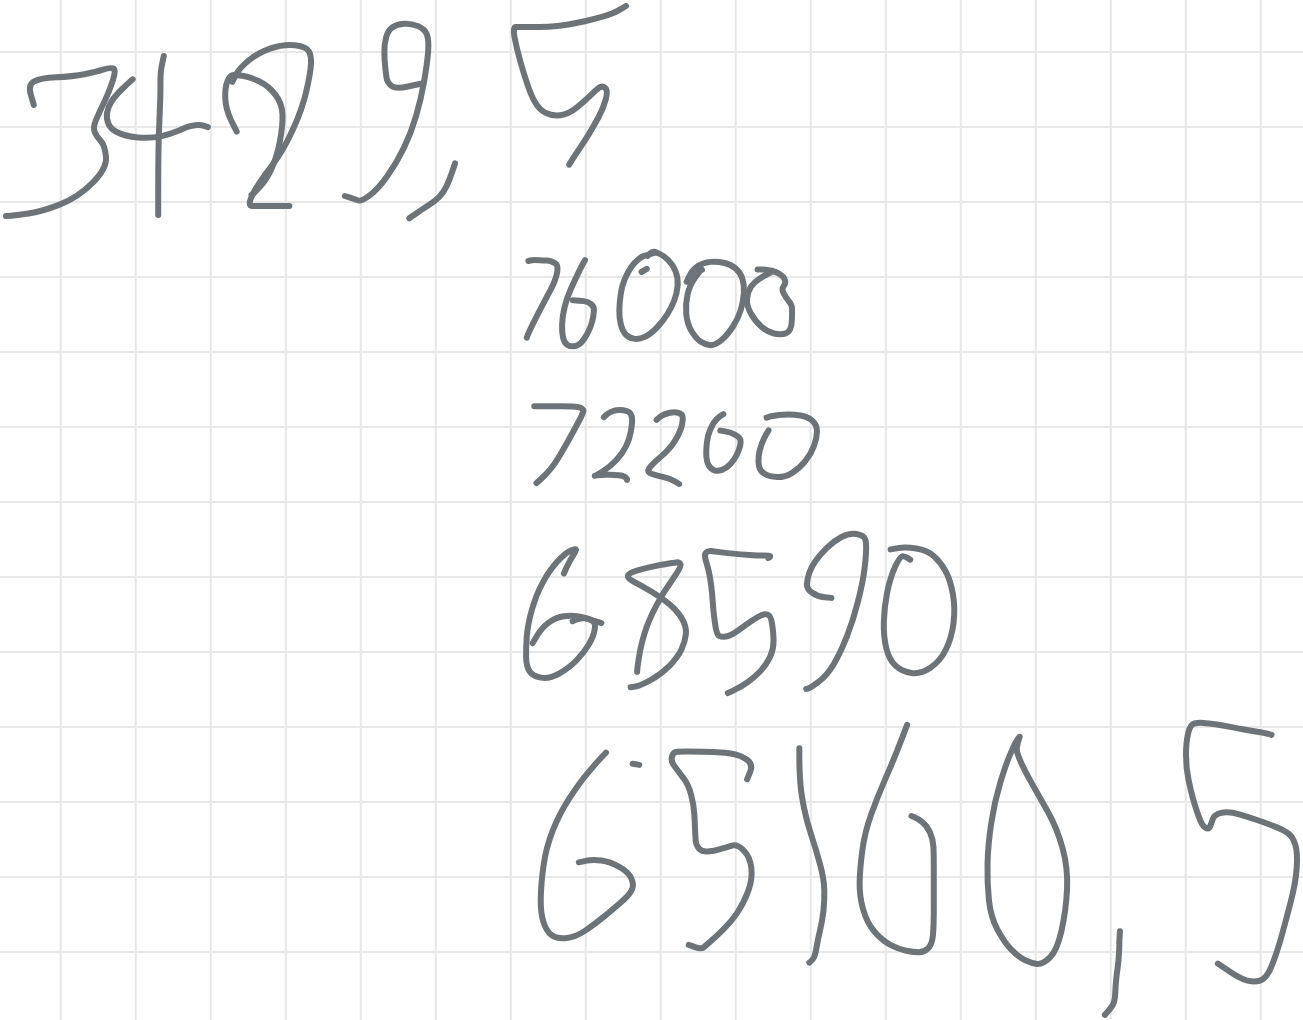 3429,5
76000
72200
68590
65160,5